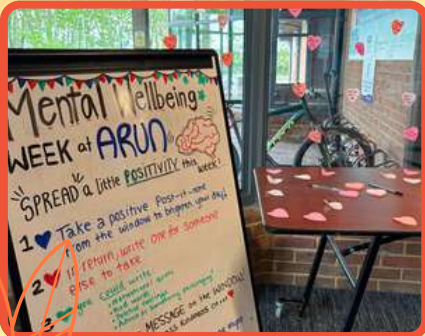 Mental Wellbeing
WEEK at ARUN
SPREAD a little POSITIVITY this week!
1 Take a positive Post-it-note
from the window to brighten your day!
2 In return, write one for someone
else to take
you could write
MESSAGE on the WINDOW!